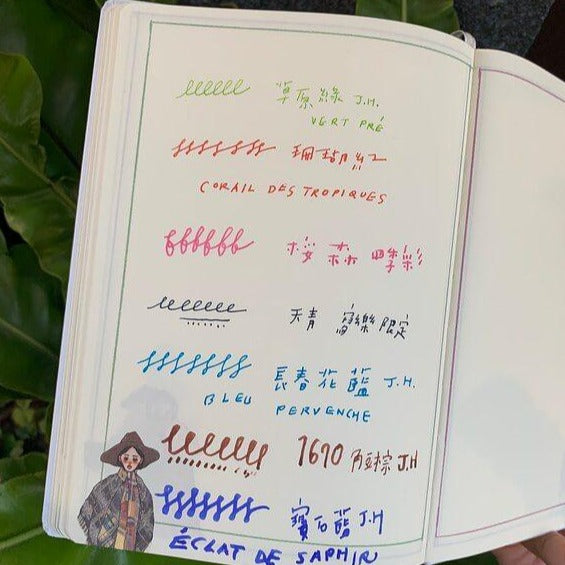 草原綠 J.H.
VERT PRÉ
珊瑚紅
CORAIL DES TROPIQUES
桜森 四季彩
天青 寫樂限定
長春花藍 J.H.
BLEU PERVENCHE
1670 棕 J.H
寶石藍 J.H
ÉCLAT DE SAPHIR